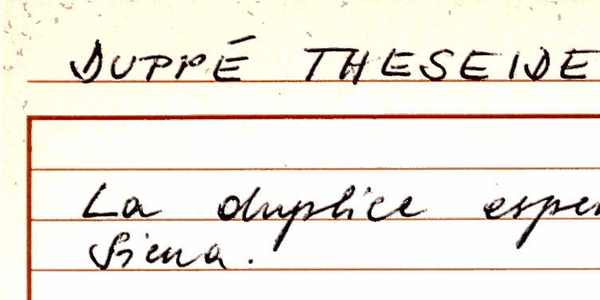 DUPPÉ THESEIDE
La duplice esper
Siena.